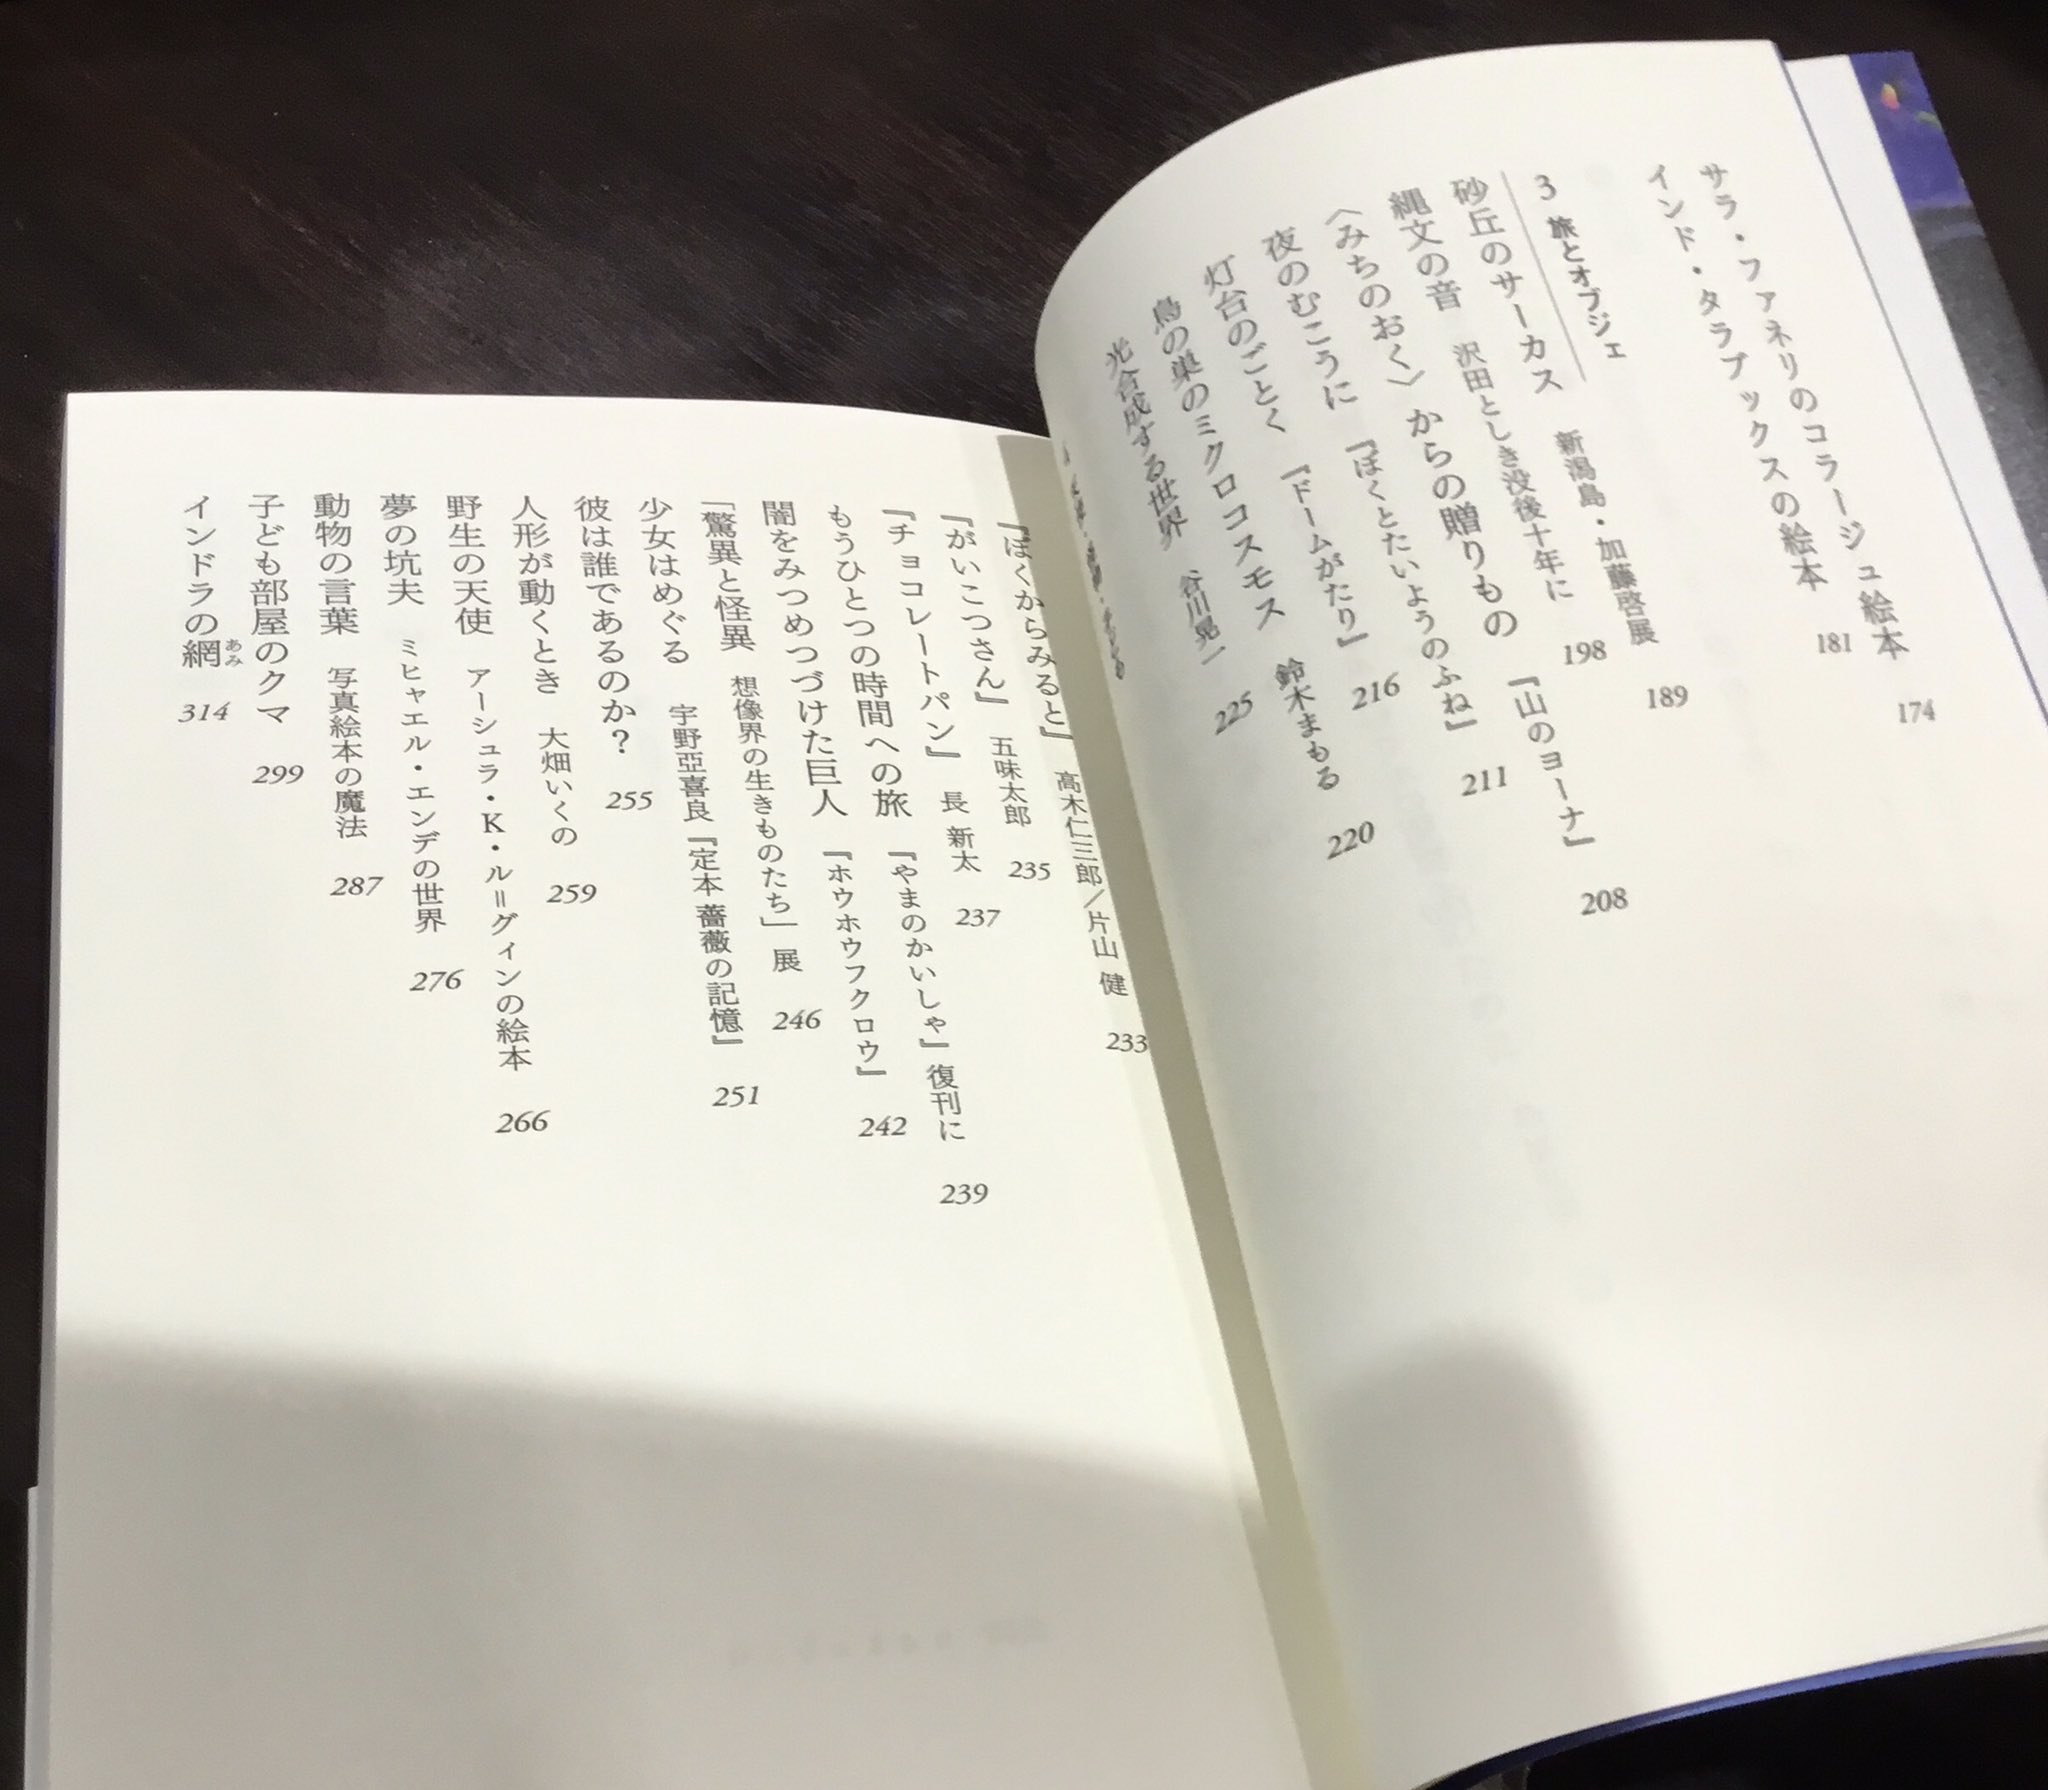 サラ・ファネリのコラージュ絵本 174
インド・タラブックスの絵本 181
3 旅とオブジェ
砂丘のサーカス 新潟島・加藤啓展 189
縄文の音 沢田としき没後十年に 198
〈みちのおく〉からの贈りもの 『山のヨーナ』 208
夜のむこうに 『ぼくとたいようのふね』 211
灯台のごとく 『ドームがたり』 216
鳥の巣のミクロコスモス 鈴木まもる 220
光合成する世界 谷川晃一 225
『ぼくからみると』 高木仁三郎／片山 健 233
『がいこつさん』 五味太郎 235
『チョコレートパン』 長 新太 237
もうひとつの時間への旅 『やまのかいしゃ』復刊に 239
闇をみつめつづけた巨人 『ホウホウフクロウ』 242
「驚異と怪異 想像界の生きものたち」展 246
少女はめぐる 宇野亞喜良『定本 薔薇の記憶』 251
彼は誰であるのか？ 255
人形が動くとき 大畑いくの 259
野生の天使 アーシュラ・K・ル＝グィンの絵本 266
夢の坑夫 ミヒャエル・エンデの世界 276
動物の言葉 写真絵本の魔法 287
子ども部屋のクマ 299
インドラの網 あみ 314